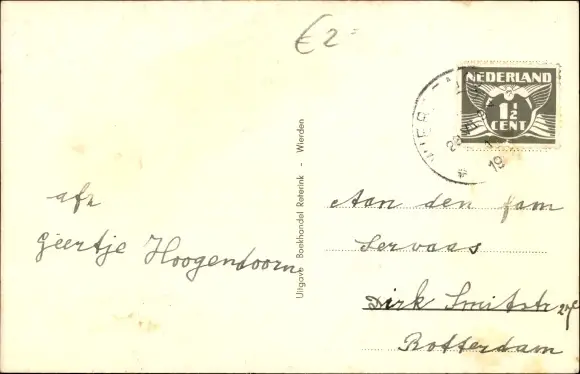 €2=
NEDERLAND
1½
CENT
WIER
19
Uitgave Boekhandel Reterink - Wierden
afz
Geertje Hoogendoorn
Aan den fam
Servaas
Dirk Smitstr
Rotterdam